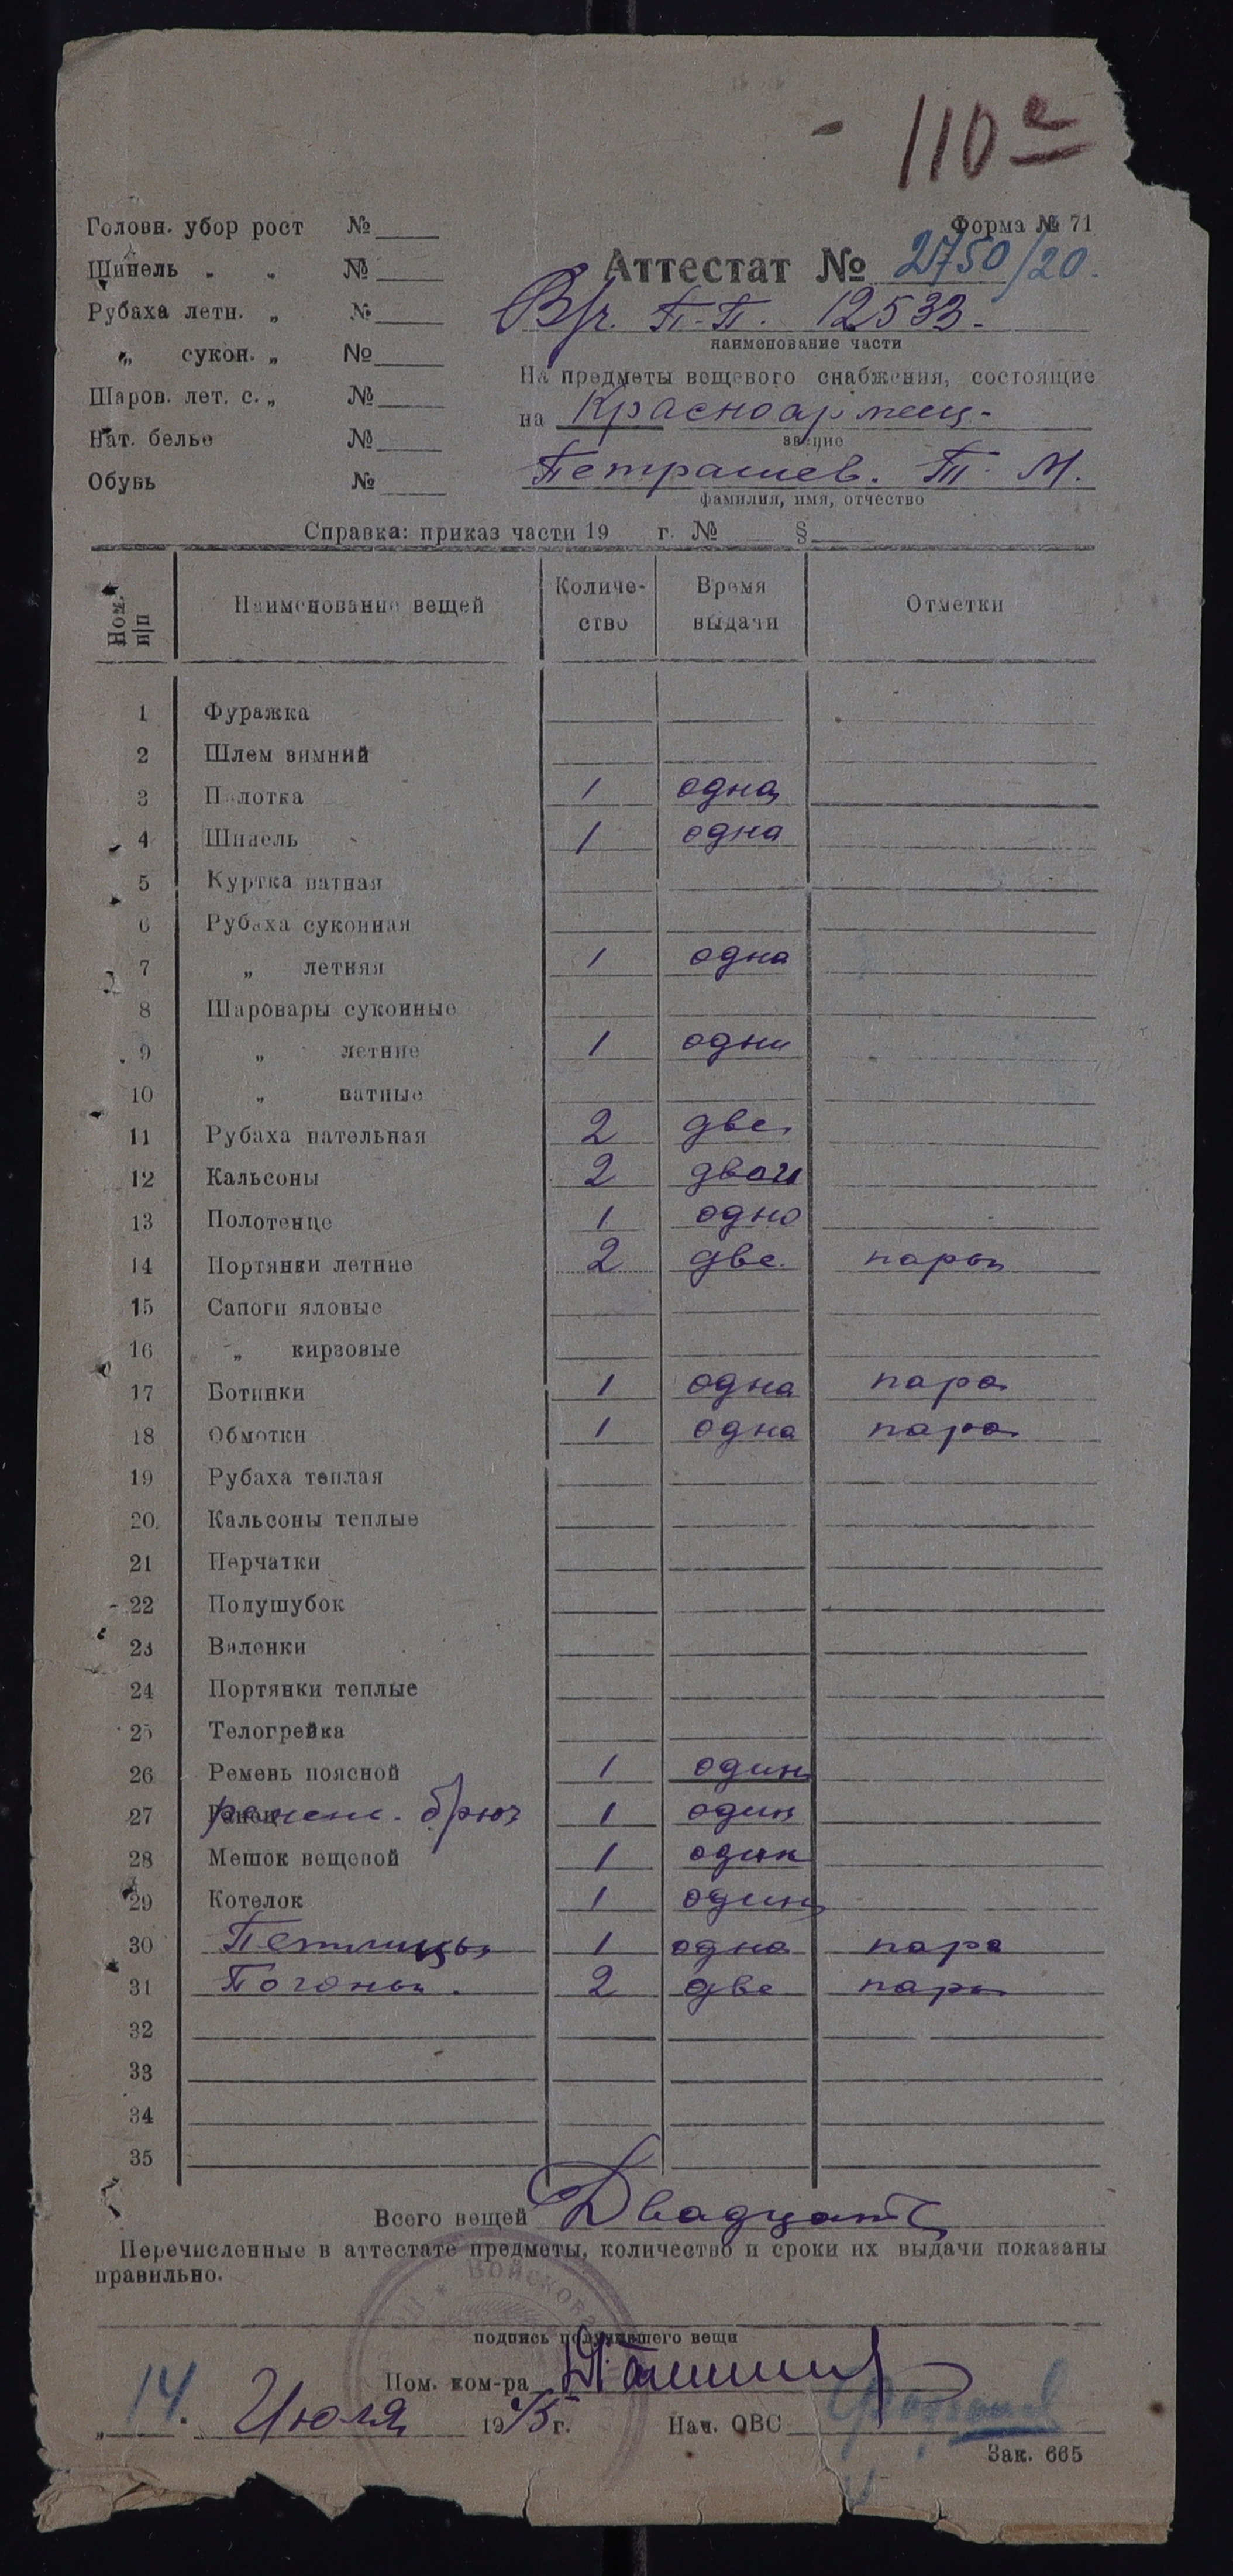 110
Форма № 71
Головн. убор рост №
Шинель „ „ №
Рубаха летн. „ №
„ сукон. „ №
Шаров. лет. с. „ №
Нат. белье №
Обувь №
Аттестат № 2750/20.
П.П. 12533.
наименование части
На предметы вещевого снабжения, состоящие
на Красноармеец-
звание
Петрашев. П. М.
фамилия, имя, отчество
Справка: приказ части 19 г. № §
Ном. п/п Наименование вещей Количество Время выдачи Отметки
1 Фуражка
2 Шлем зимний
3 Пилотка 1 одна
4 Шинель 1 одна
5 Куртка ватная
6 Рубаха суконная
7 „ летняя 1 одна
8 Шаровары суконные
9 „ летние 1 одни
10 „ ватные
11 Рубаха нательная 2 две
12 Кальсоны 2 двои
13 Полотенце 1 одно
14 Портянки летние 2 две. пары
15 Сапоги яловые
16 „ кирзовые
17 Ботинки 1 одна пара
18 Обмотки 1 одна пара
19 Рубаха теплая
20. Кальсоны теплые
21 Перчатки
22 Полушубок
23 Валенки
24 Портянки теплые
25 Телогрейка
26 Ремень поясной 1 один
27 брюч 1 один
28 Мешок вещевой 1 один
29 Котелок 1 один
30 Петлицы 1 одна пара
31 Погоны. 2 две пары
32
33
34
35
Всего вещей Двадцать
Перечисленные в аттестате предметы, количество и сроки их выдачи показаны
правильно.
подпись получившего вещи
Пом. ком-ра
„14. Июля 1945 г. Нач. ОВС
Зак. 665